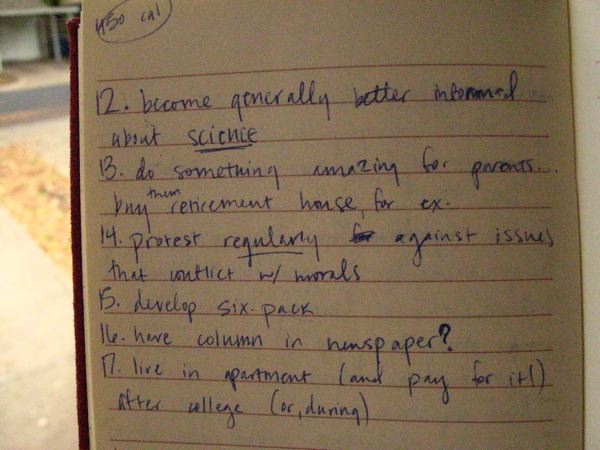 450 cal
12. become generally better informed
about science
13. do something amazing for parents...
buy them retirement house, for ex.
14. protest regularly against issues
that conflict w/ morals
15. develop six-pack
16. have column in newspaper?
17. live in apartment (and pay for it!)
after college (or, during)